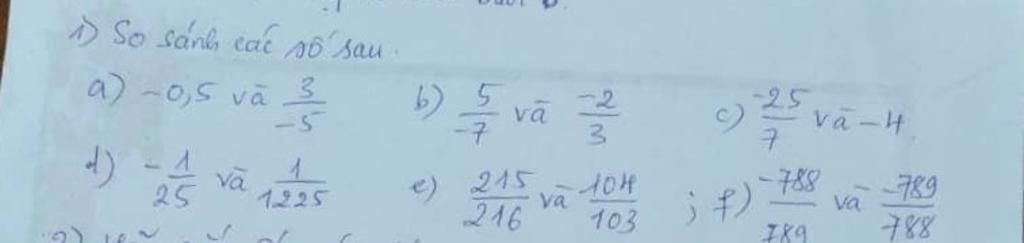 1) So sánh các số sau.
a) -0,5 và 3/-5 b) 5/-7 và -2/3 c) -25/7 và -4.
d) -1/25 và 1/1225 e) 215/216 và 104/103 ; f) -788/789 và -789/788